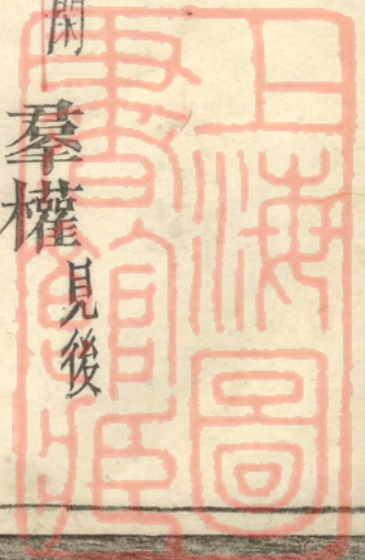 上海圖
書館藏
閑
羣權見後